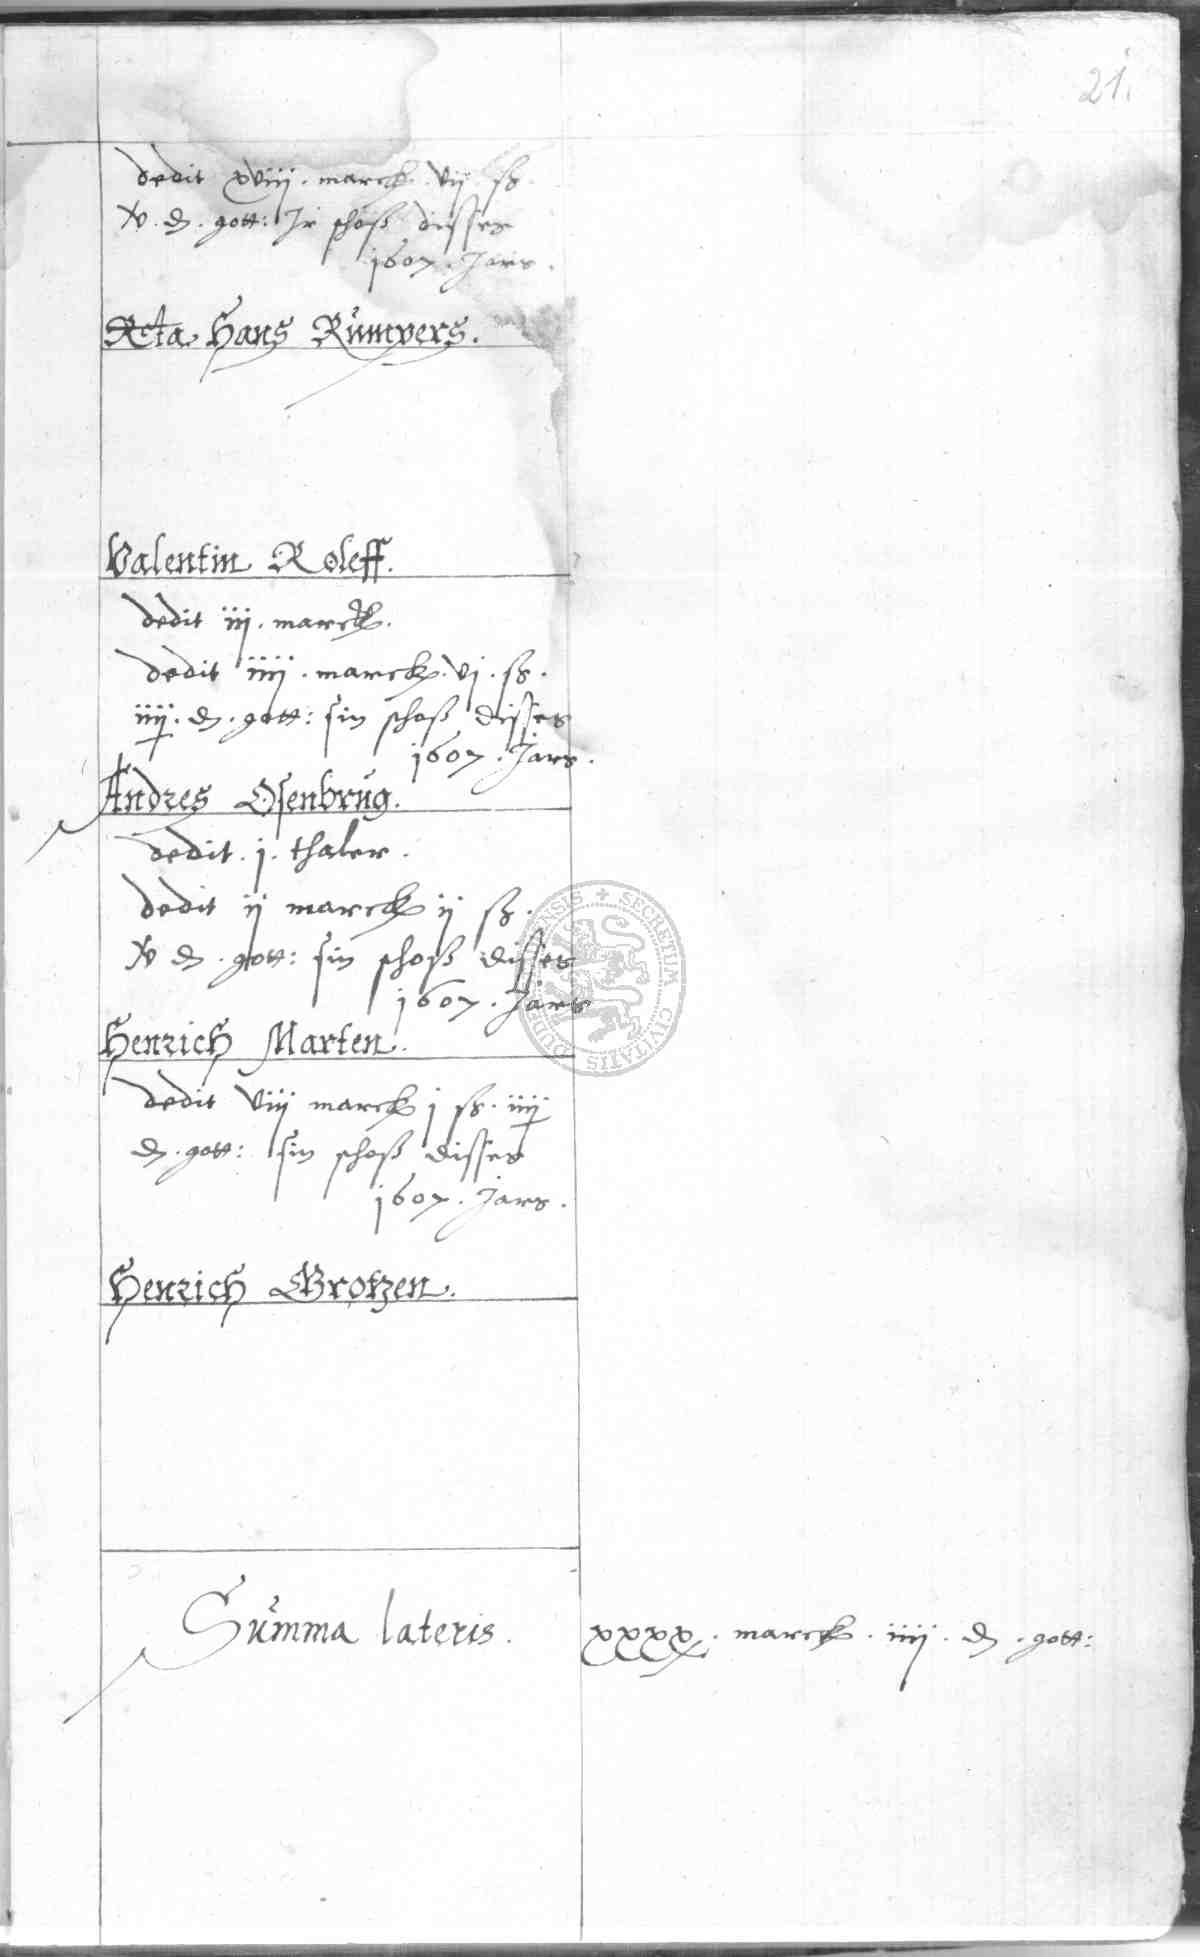 21.
dedit xviij . marck . vij . ß .
x . d . gott : Ir schoß disses
1607 . Jars .
Rcta Hans Rümvers .
Valentin Roleff .
dedit iij . marck .
dedit iiij . marck . vj . ß .
iiij . d . gott : sin schoß disses
1607 . Jars .
Andres Osenbrüg .
dedit . j . thaler .
dedit ij marck ij ß .
x d . gott : sin schoß disses
1607 . Jars
Henrich Marten .
dedit viij marck j ß . iiij
d . gott : sin schoß disses
1607 . Jars .
Henrich Grotzen .
Summa lateris . xxxx . marck . iiij . d . gott :
SECRETUM CIVITATIS